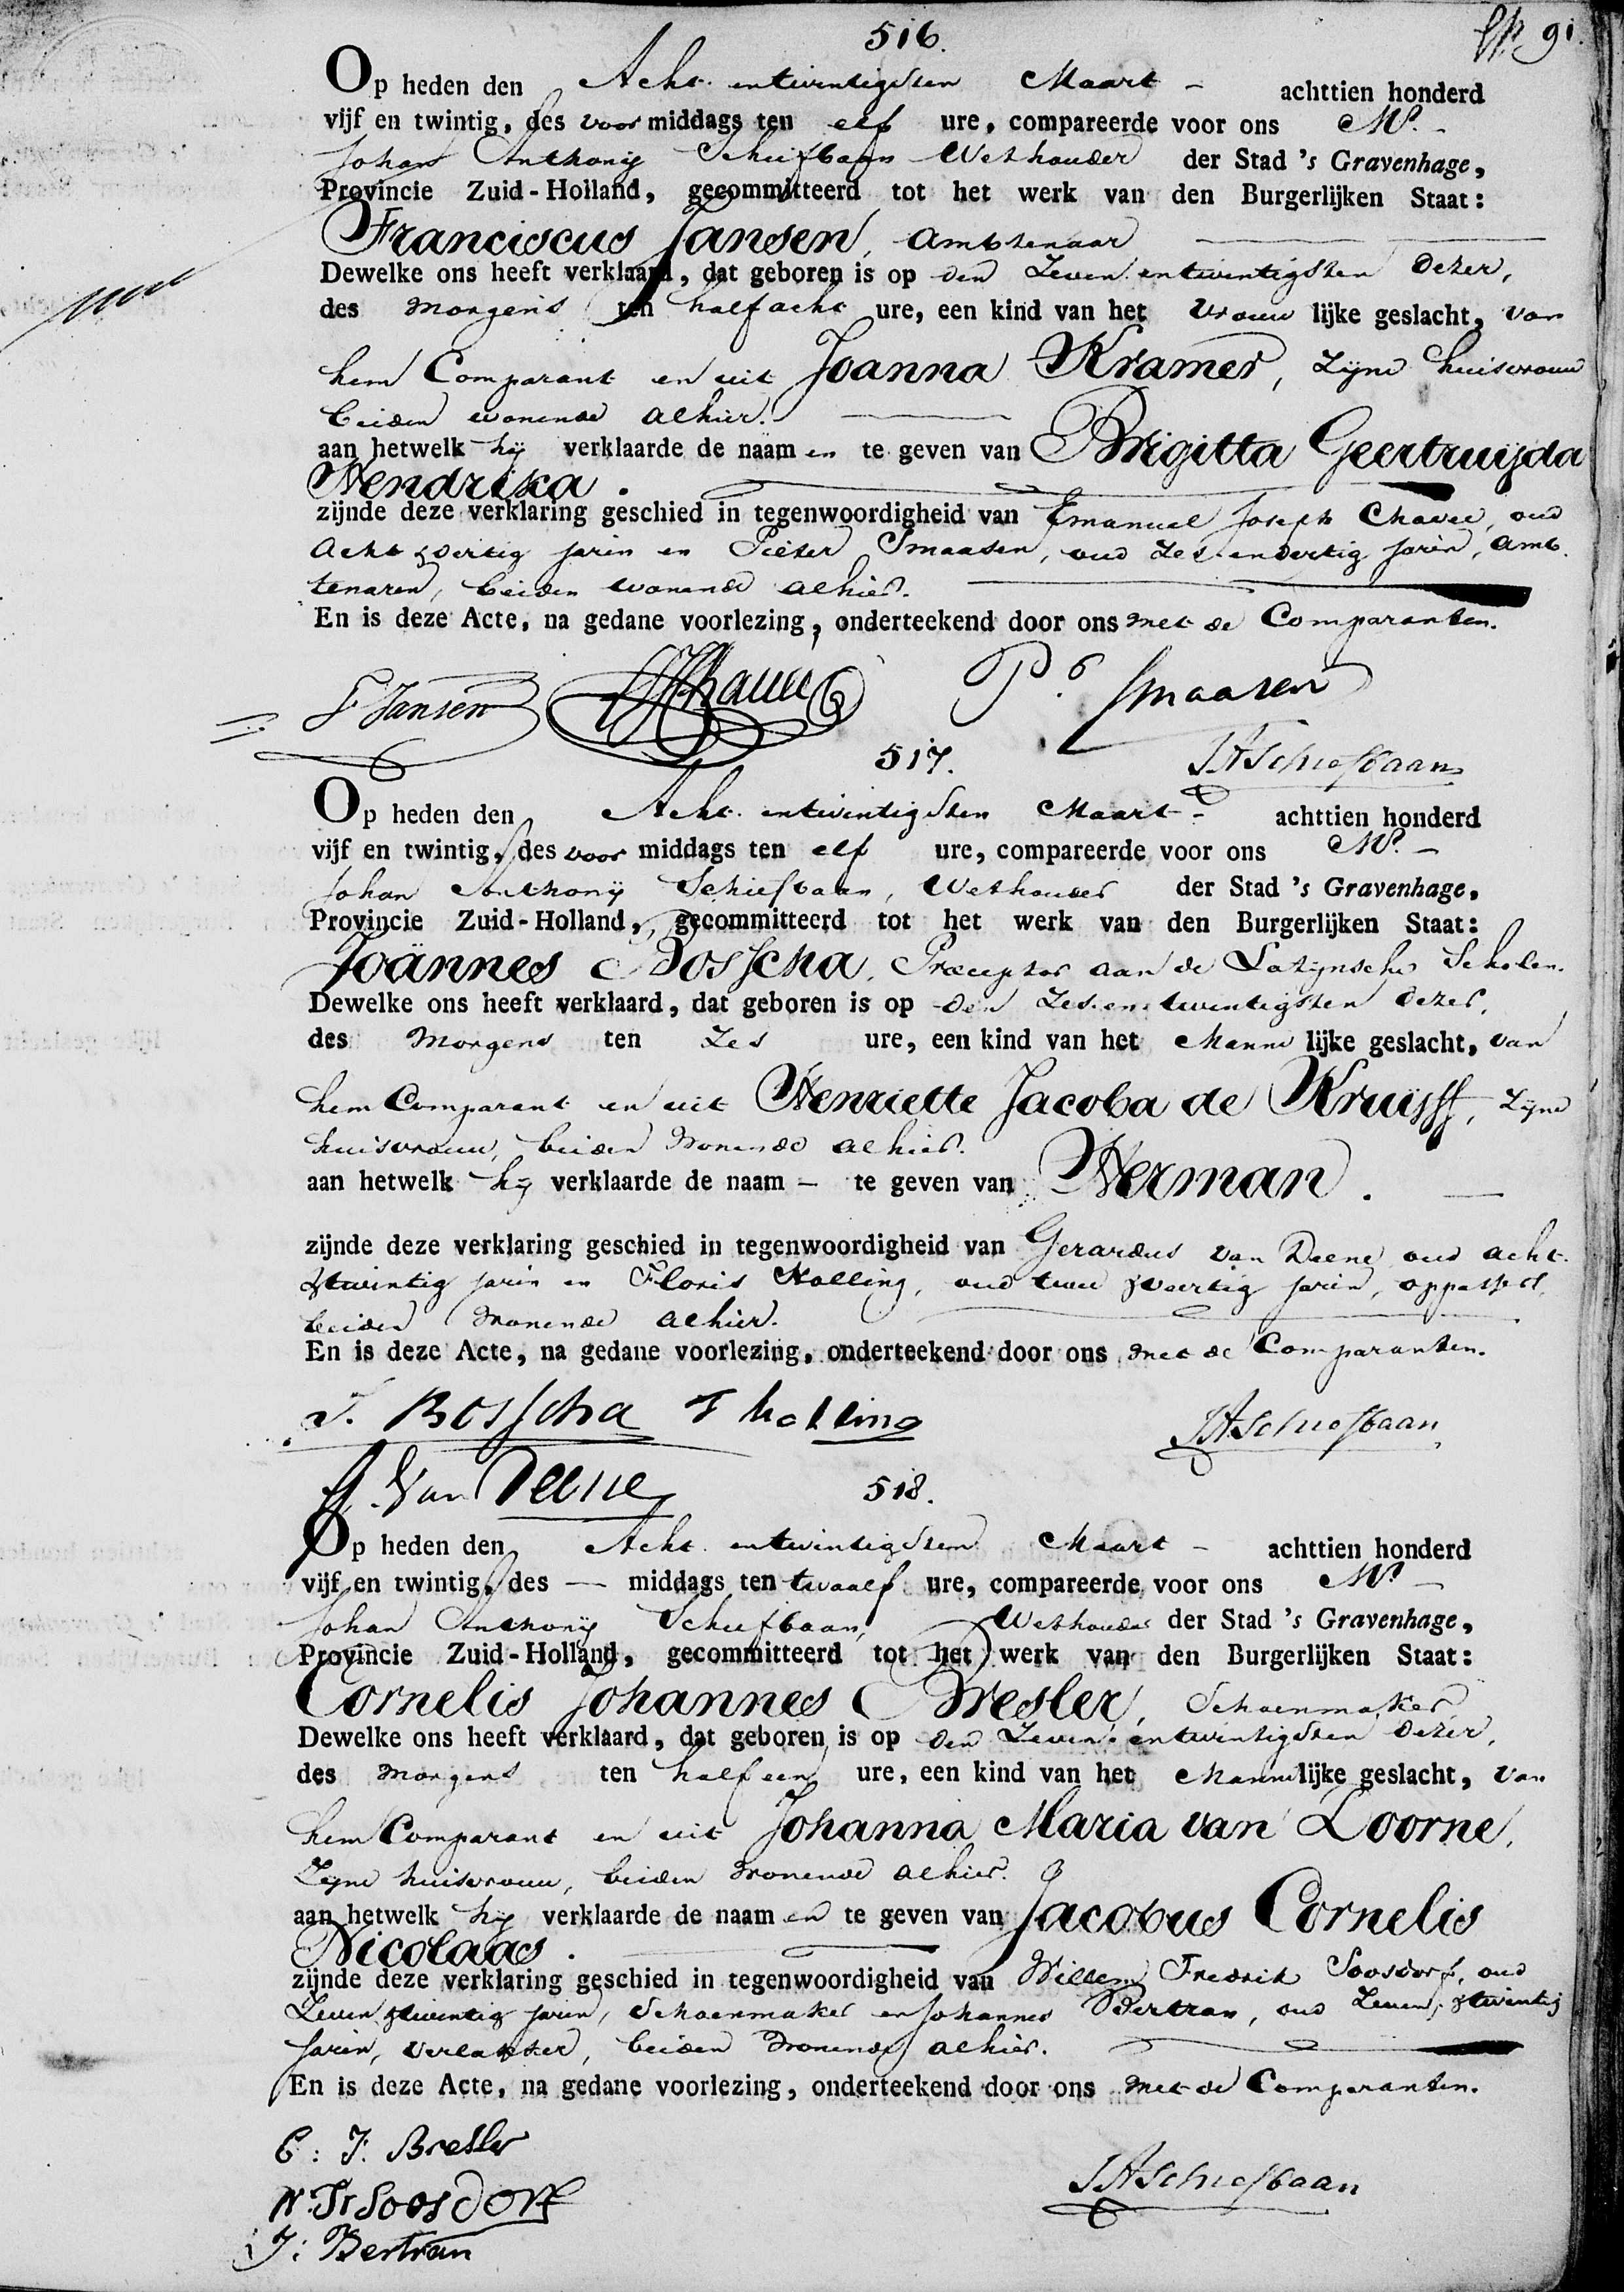 516.
91.
Op heden den Acht entwintigsten Maart – achttien honderd
vijf en twintig, des voor middags ten elf ure, compareerde voor ons Mr. –
Johan Anthonij Schiefbaan Wethouder der Stad 's Gravenhage,
Provincie Zuid-Holland, gecommitteerd tot het werk van den Burgerlijken Staat:
Franciscus Jansen, Ambtenaar
Dewelke ons heeft verklaard, dat geboren is op den Zeven entwintigsten dezer,
des morgens ten half acht ure, een kind van het vrouw lijke geslacht, van
hem Comparant en uit Joanna Kramer, zijne huisvrouw
beiden wonende alhier.
aan hetwelk hij verklaarde de naam en te geven van Brigitta Geertruijda
Hendrika.
zijnde deze verklaring geschied in tegenwoordigheid van Emanuel Joseph Chavee, oud
acht & dertig jaren en Pieter Smaasen, oud zes en dertig jaren, amb
tenaren, beiden wonende alhier.
En is deze Acte, na gedane voorlezing, onderteekend door ons met de Comparanten.
F Jansen Chavee P. Smaasen
517.
JASchiefbaan
Op heden den Acht entwintigsten Maart – achttien honderd
vijf en twintig, des voor middags ten elf ure, compareerde voor ons Mr. –
Johan Anthonij Schiefbaan, Wethouder der Stad 's Gravenhage,
Provincie Zuid-Holland, gecommitteerd tot het werk van den Burgerlijken Staat:
Joännes Bosscha, Præceptor aan de Latijnsche Scholen.
Dewelke ons heeft verklaard, dat geboren is op den Zes en twintigsten dezer,
des morgens ten Zes ure, een kind van het manne lijke geslacht, van
hem Comparant en uit Henriette Jacoba de Kruijff, zijne
huisvrouw, beiden wonende alhier.
aan hetwelk hij verklaarde de naam – te geven van Herman. —
zijnde deze verklaring geschied in tegenwoordigheid van Gerardus van Deene oud acht
& twintig jaren en Floris Holling, oud twee & veertig jaren, oppassers,
beiden wonende alhier.
En is deze Acte, na gedane voorlezing, onderteekend door ons met de Comparanten.
J. Bosscha F holling JASchiefbaan
G. Van Deene
518.
Op heden den Acht entwintigsten Maart – achttien honderd
vijf en twintig, des — middags ten twaalf ure, compareerde voor ons Mr. –
Johan Anthonij Schiefbaan, Wethouder der Stad 's Gravenhage,
Provincie Zuid-Holland, gecommitteerd tot het werk van den Burgerlijken Staat:
Cornelis Johannes Bresler, Schoenmaker,
Dewelke ons heeft verklaard, dat geboren is op den Zeven entwintigsten dezer,
des morgens ten half een ure, een kind van het manne lijke geslacht, van
hem Comparant en uit Johanna Maria van Doorne,
zijne huisvrouw, beiden wonende alhier.
aan hetwelk hij verklaarde de naam en te geven van Jacobus Cornelis
Nicolaas.
zijnde deze verklaring geschied in tegenwoordigheid van Willem Fredrik Soosdorf, oud
Zeven & twentig jaren, Schoenmaker en Johannes Bertran, oud Zeven & twintig
jaren, verlakker, beiden wonende alhier.
En is deze Acte, na gedane voorlezing, onderteekend door ons met de Comparanten.
C: J: Bresler
W: Fr Soosdorf JASchiefbaan
J: Bertran